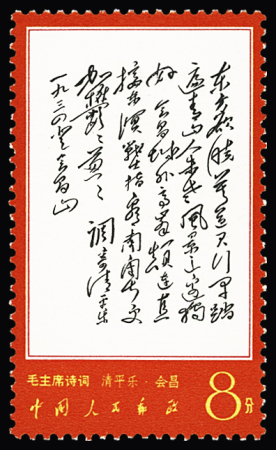 东方欲晓莫道君行早踏
遍青山人未老风景这边独
好会昌城外高峰颠连直
接东溟战士指看南粤更
加郁々葱々
调寄清平乐
一九三四登会昌山
毛主席诗词 清平乐·会昌
中国人民邮政
8分